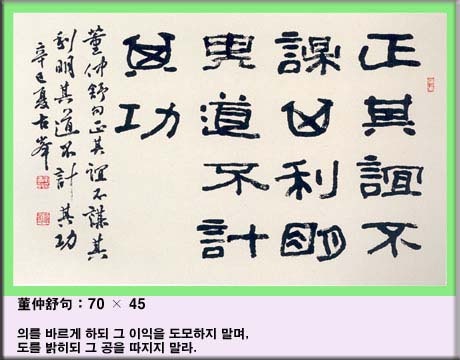 正其誼不
謀其利明
其道不計
其功
董仲舒句正其誼不謀其
利明其道不計其功
辛巳夏古峯
董仲舒句 : 70 × 45
의를 바르게 하되 그 이익을 도모하지 말며,
도를 밝히되 그 공을 따지지 말라.